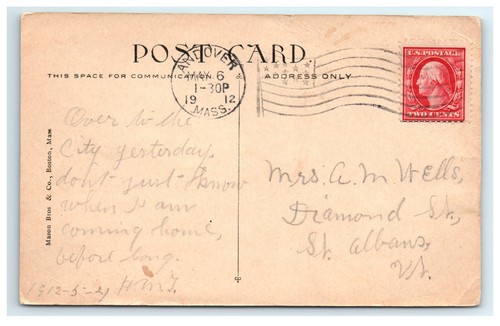 POST CARD.
THIS SPACE FOR COMMUNICATION.
ADDRESS ONLY
ANDOVER
MAY 6
1-30P
19 12
MASS.
U.S. POSTAGE
TWO CENTS
Over to the
City yesterday
dont just know
when I am
coming home,
before long.
1912-5-
Mrs. A. M. Wells,
Diamond St,
St. Albans,
Vt.
Mason Bros & Co., Boston, Mass